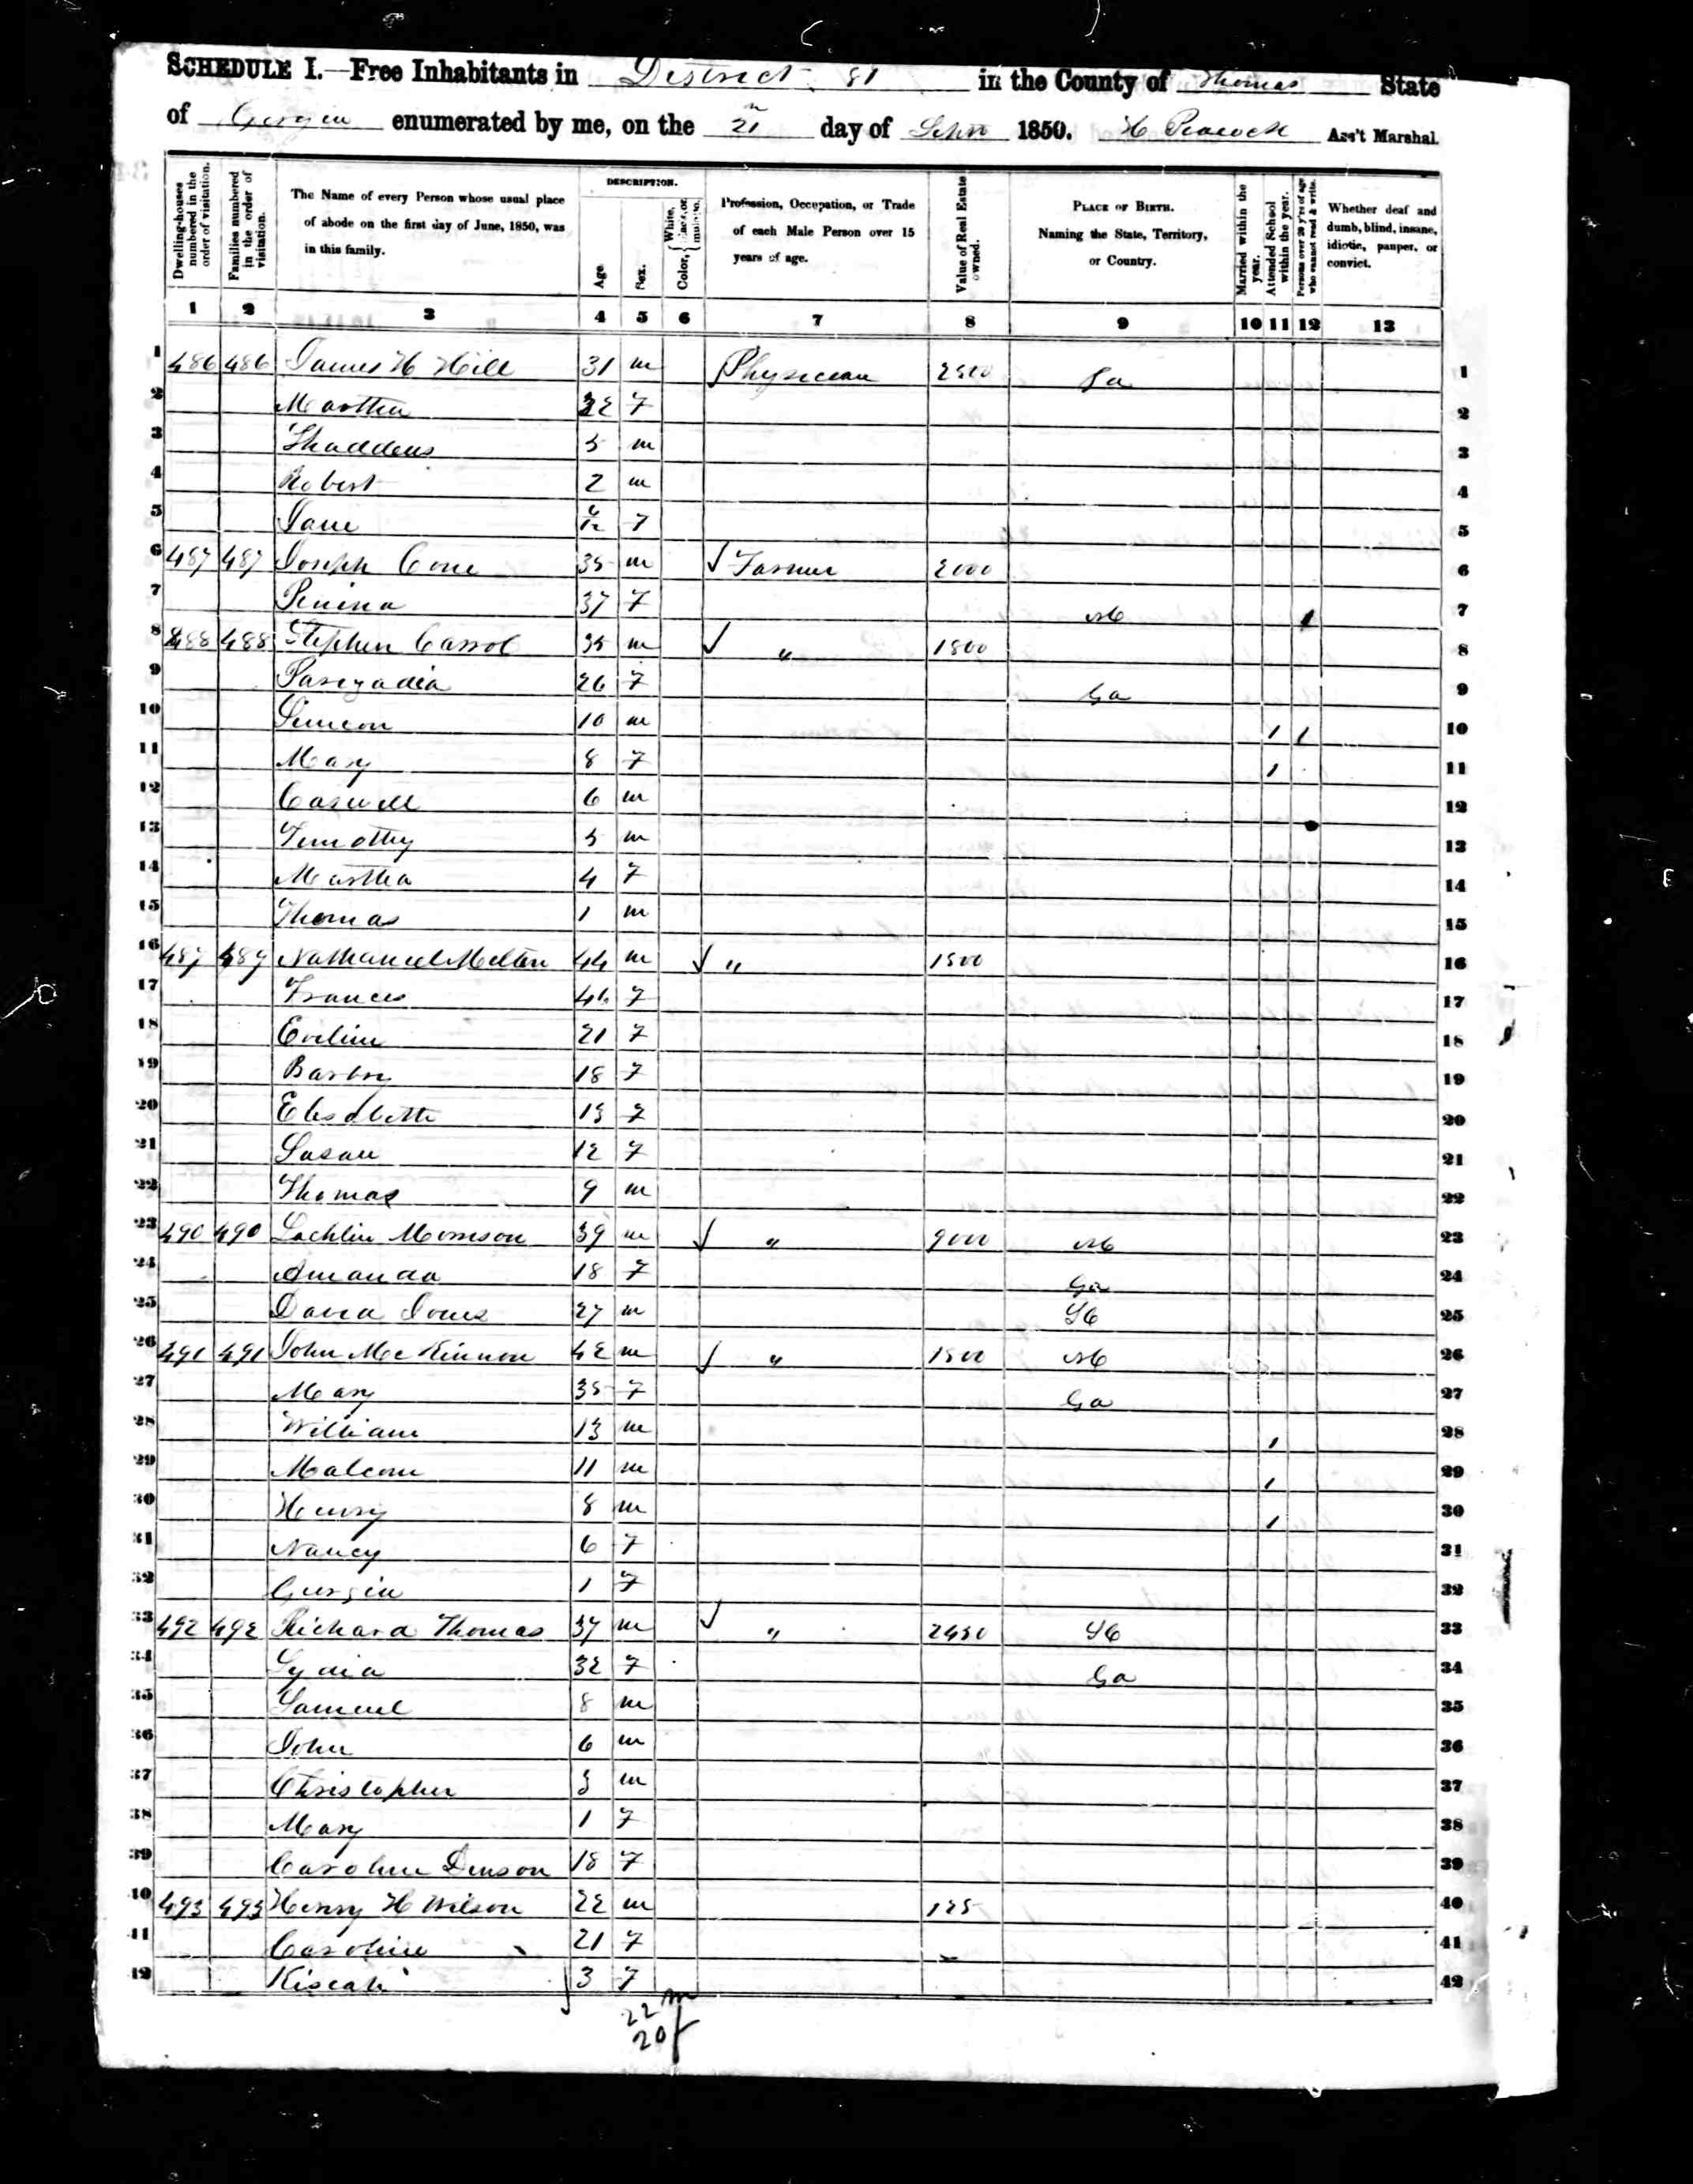 SCHEDULE I.—Free Inhabitants in District 81 in the County of Thomas State
of Georgia enumerated by me, on the 21 day of 1850. H Peacock Ass't Marshal.
Dwelling-houses numbered in the order of visitation.
Families numbered in the order of visitation.
The Name of every Person whose usual place of abode on the first day of June, 1850, was in this family.
DESCRIPTION.
Age.
Sex.
Color, White, black, or mulatto.
Profession, Occupation, or Trade of each Male Person over 15 years of age.
Value of Real Estate owned.
PLACE OF BIRTH. Naming the State, Territory, or Country.
Married within the year.
Attended School within the year.
Persons over 20 y'rs of age who cannot read & write.
Whether deaf and dumb, blind, insane, idiotic, pauper, or convict.
1 2 3 4 5 6 7 8 9 10 11 12 13
1 486 486 James H Hill 31 m Physician 2500 Ga 1
2 Martha 22 F 2
3 Thaddeus 5 m 3
4 Robert 2 m 4
5 Jane F 5
6 487 487 Joseph Cone 35 m Farmer 2000 6
7 Penina 37 F NC 1 7
8 488 488 Stephen Carrol 35 m " 1800 8
9 26 F Ga 9
10 Simeon 10 m 1 1 10
11 Mary 8 F 1 11
12 Caswell 6 m 12
13 Timothy 5 m 13
14 Martha 4 F 14
15 Thomas 1 m 15
16 489 489 Nathaniel Melton 44 m " 1500 16
17 Frances 46 F 17
18 Eveline 21 F 18
19 18 F 19
20 Elisabeth 15 F 20
21 Susan 12 F 21
22 Thomas 9 m 22
23 490 490 Lochlin Morrison 39 m " 9000 NC 23
24 Amanda 18 F Ga 24
25 David Jones 27 m SC 25
26 491 491 John McKinnon 42 m " 1500 NC 26
27 Mary 35 F Ga 27
28 William 13 m 1 28
29 Malcom 11 m 1 29
30 Henry 8 m 1 30
31 Nancy 6 F 31
32 Georgia 1 F 32
33 492 492 Richard Thomas 37 m " 2450 SC 33
34 Lydia 32 F Ga 34
35 Samuel 8 m 35
36 John 6 m 36
37 Christopher 3 m 37
38 Mary 1 F 38
39 Caroline Denson 18 F 39
40 493 493 Henry H Wilson 22 m 125 40
41 Caroline 21 F 41
42 Kiseah 3 F 42
22 m
20 f